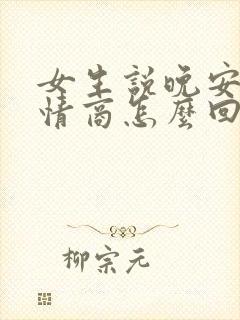 女生説晚安
情商怎麼回
柳宗元